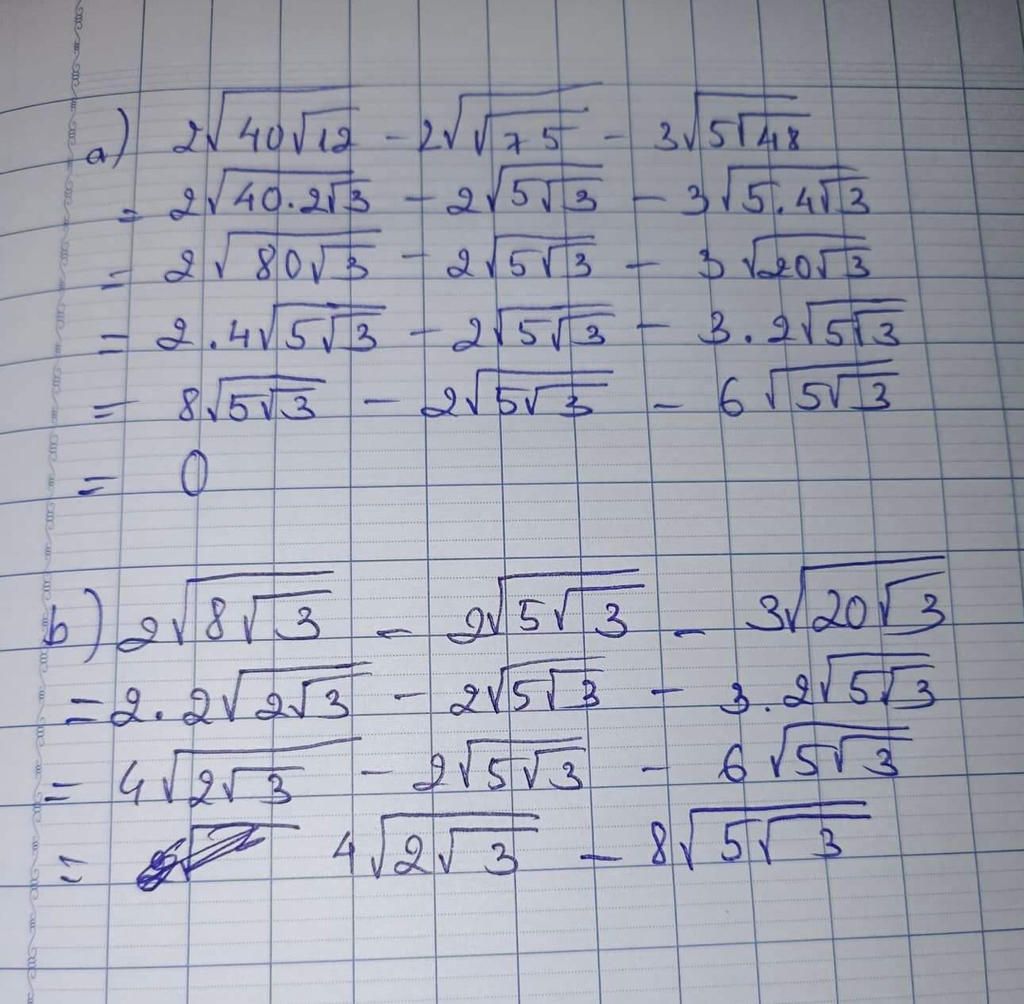 a) 2√(40√12) - 2√(√75) - 3√(5√48)
= 2√(40.2√3) - 2√(5√3) - 3√(5.4√3)
= 2√(80√3) - 2√(5√3) - 3√(20√3)
= 2.4√(5√3) - 2√(5√3) - 3.2√(5√3)
= 8√(5√3) - 2√(5√3) - 6√(5√3)
= 0
b) 2√(8√3) - 2√(5√3) - 3√(20√3)
= 2.2√(2√3) - 2√(5√3) - 3.2√(5√3)
= 4√(2√3) - 2√(5√3) - 6√(5√3)
= 4√(2√3) - 8√(5√3)